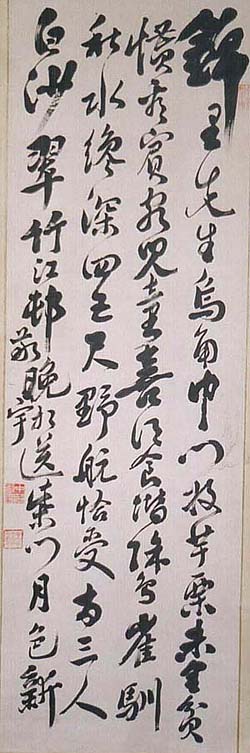 錦里先生烏角巾門收芋栗未全貧
慣看賓客兒童喜得食階除鳥雀馴
秋水纔深四五尺野航恰受兩三人
白沙翠竹江邨晚相送柴門月色新
敬宇